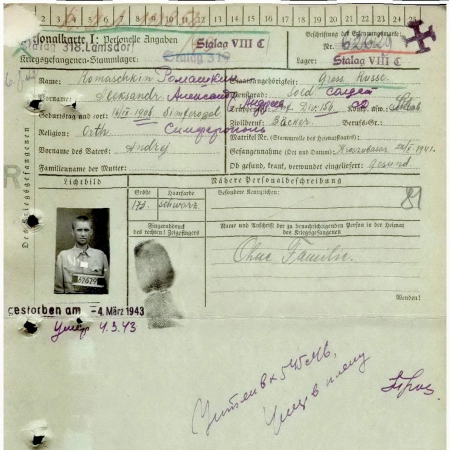 1 2 3 4 5 6 7 8 9 10 11 12 13 14 15 16 17 18 19 20 21 22 23 24 25
Personalkarte I: Personelle Angaben
Stalag VIII C
Beschriftung der Erkennungsmarke
Stalag 318 Lamsdorf
Stalag 318
Nr. 62629
Kriegsgefangenen-Stammlager:
Lager: Stalag VIII C
Name: Romaschkin Ромашкин
Staatsangehörigkeit: Gross Russe.
Vorname: Aleksandr Александр Андреев
Dienstgrad: Sold солдат
Geburtstag und -ort: 1908 Simferopol Симферополь
Zivilberuf: Bäcker Berufs-Gr.:
Religion: Orth
Matrikel Nr. (Stammrolle des Heimatstaates):
Vorname des Vaters: Andrej
Gefangennahme (Ort und Datum): 1941.
Familienname der Mutter:
Ob gesund, krank, verwundet eingeliefert: gesund
Des Kriegsgefangenen
Lichtbild
Nähere Personalbeschreibung
Größe
Haarfarbe
Besondere Kennzeichen:
173
schwarz
81
Fingerabdruck
des rechten! Zeigefingers
Name und Anschrift der zu benachrichtigenden Person in der Heimat
des Kriegsgefangenen
Ohne Familie.
62629
Wenden!
gestorben am -4. März 1943
Умер 4.3.43
Умер в плену